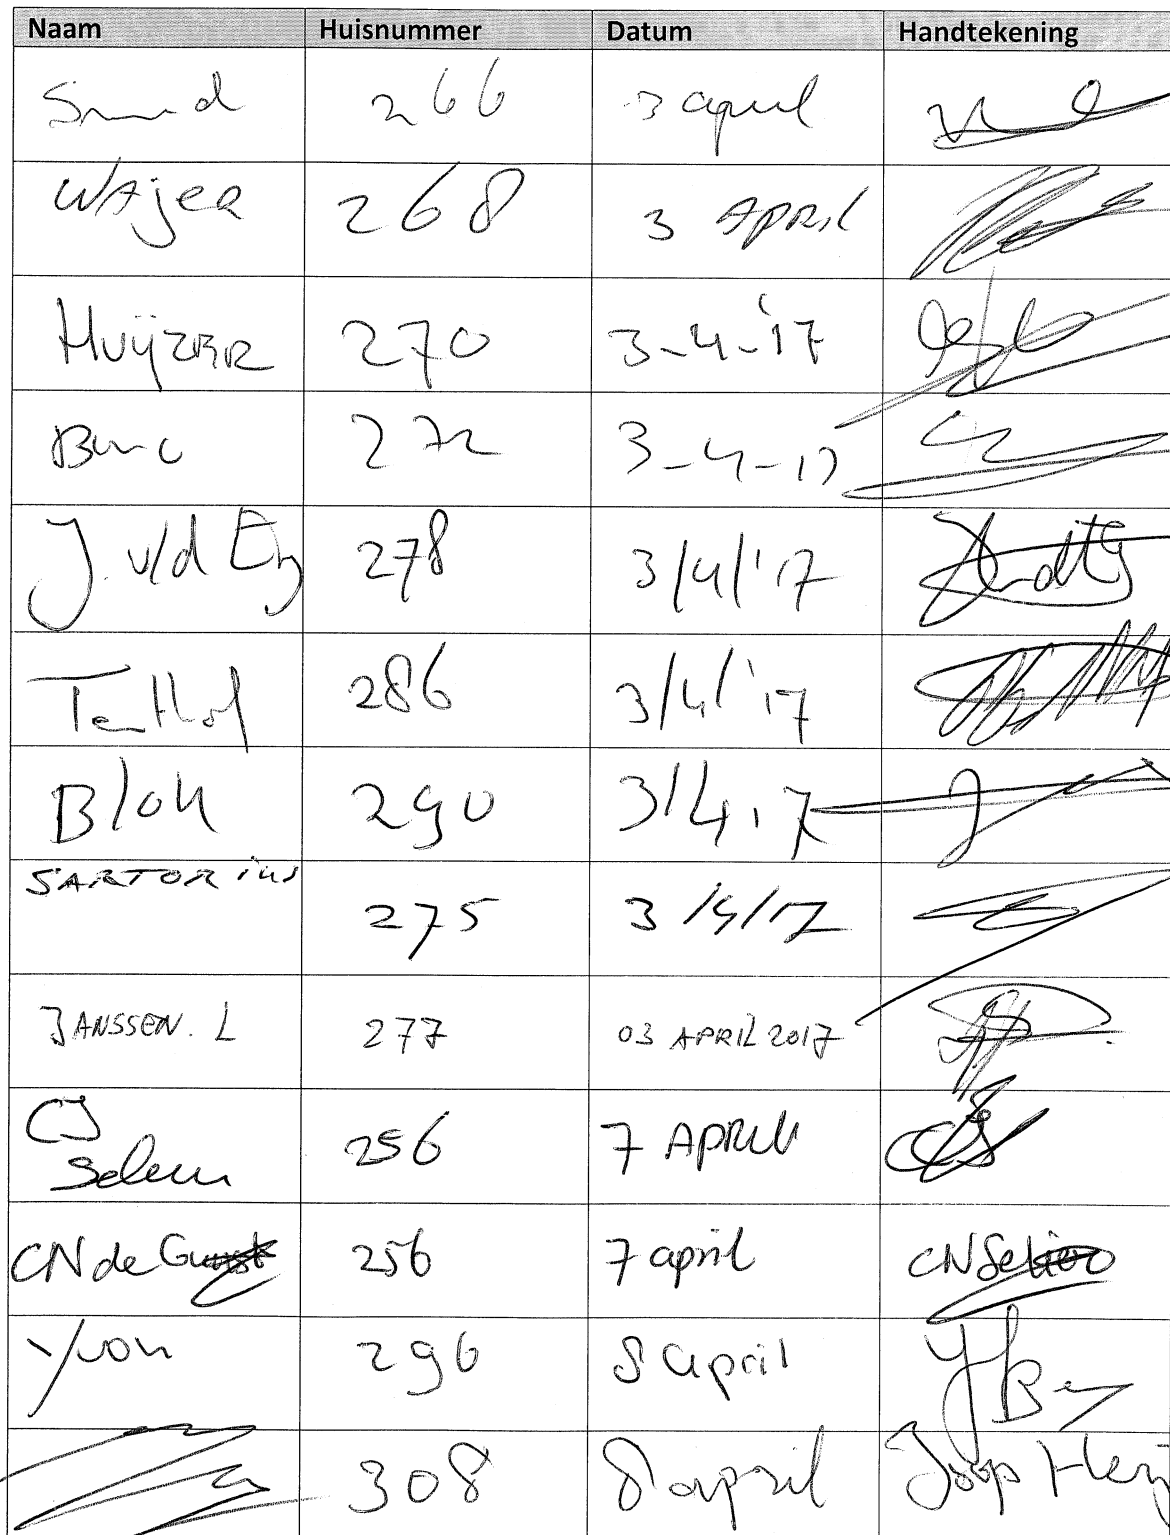 Naam Huisnummer Datum Handtekening
266 3 april
WAjer 268 3 APRIL
Huÿzer 270 3-4-'17
272 3-4-17
J. v/d 278 3/4/'17
Ten Hof 286 3/4/'17
Blok 290 3/4 17
SARTORius
275 3/4/17
JANSSEN. L 277 03 APRIL 2017
CJ 256 7 APRIL
CN de 256 7 april CN
Yvon 296 8 april
308 8 april Joop